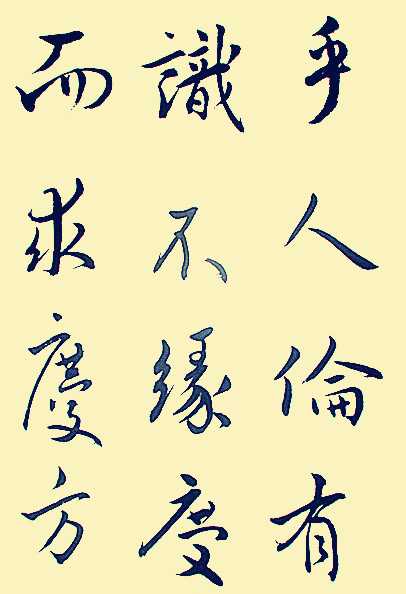 乎人倫有
識不緣慶
而求慶方